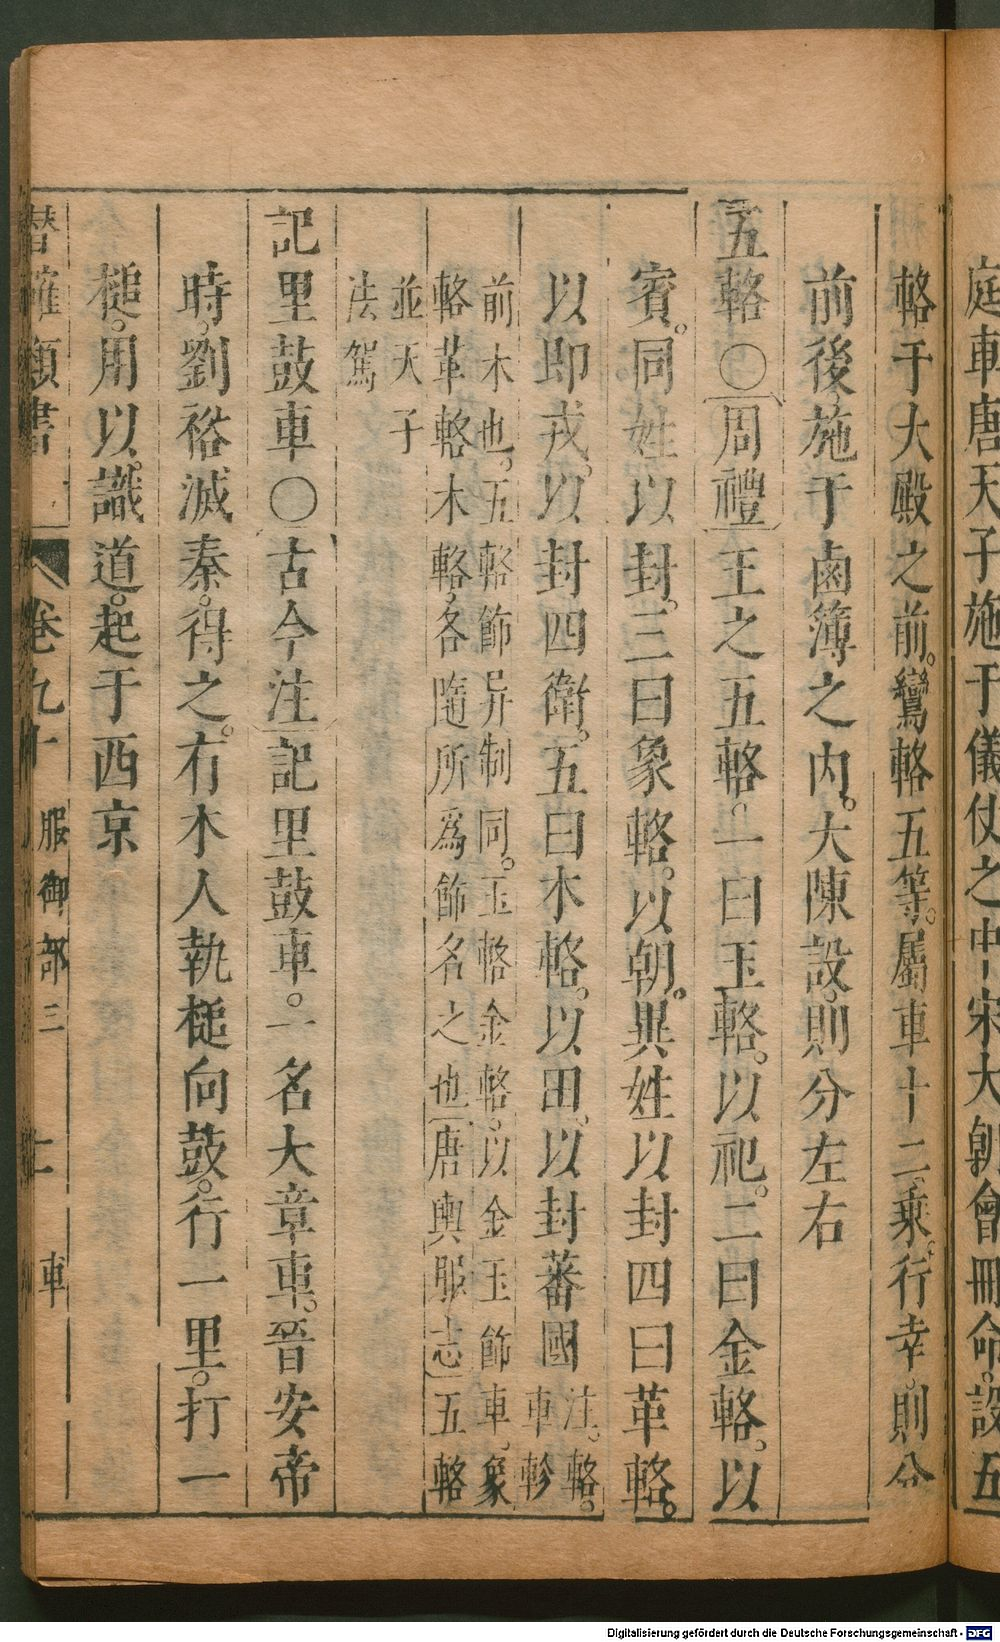 庭車唐天子施于儀仗之中宋大朝會冊命。設五
輅于大殿之前。鸞輅五等。屬車十二乘。行幸則分
前後。施于鹵簿之內。大陳設。則分左右
五輅○周禮王之五輅。一曰玉輅。以祀。二曰金輅。以
賓。同姓以封。三曰象輅。以朝。異姓以封四曰革輅。
以即戎。以封四衛。五曰木輅。以田。以封蕃國注。輅。車軫
前木也。五輅飾异制同。玉輅金輅。以金玉飾車。象
輅革輅木輅。各隨所為飾名之也唐輿服志五輅
並天子
法駕
記里鼓車○古今注記里鼓車。一名大章車。晉安帝
時。劉裕滅秦。得之。有木人執槌向鼓。行一里。打一
槌。用以識道。起于西京
潛確類書 卷九十 服御部三 車
Digitalisierung gefördert durch die Deutsche Forschungsgemeinschaft - DFG